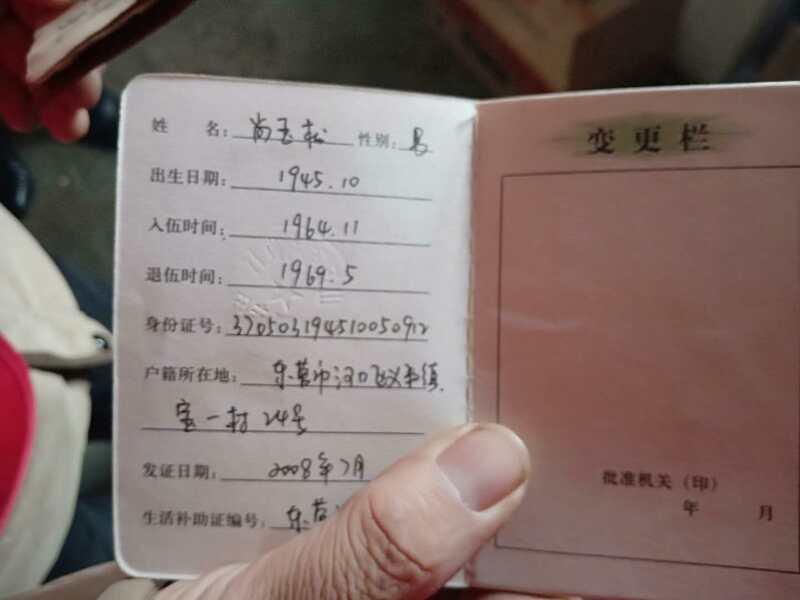 姓 名：尚玉松 性别：男
出生日期：1945.10
入伍时间：1964.11
退伍时间：1969.5
身份证号：370503194510050912
户籍所在地：东营市河口区义和镇
宝一村 24号
发证日期：2008年7月
生活补助证编号：东营
变更栏
批准机关（印）
年 月